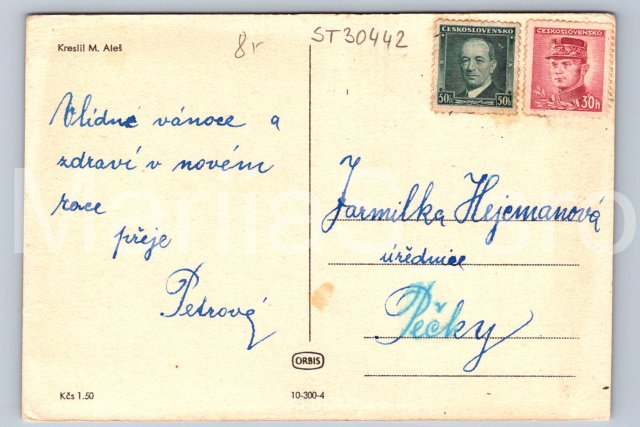 Kreslil M. Aleš
8r
ST30442
ČESKOSLOVENSKO
50h 50h
ČESKOSLOVENSKO
30h
Vlídné vánoce a
zdraví v novém
roce
přeje
Petrová
Jarmilka Hejcmanová
úřednice
Pečky
ORBIS
Kčs 1.50
10-300-4